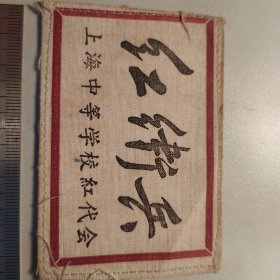 红卫兵
上海中等学校红代会